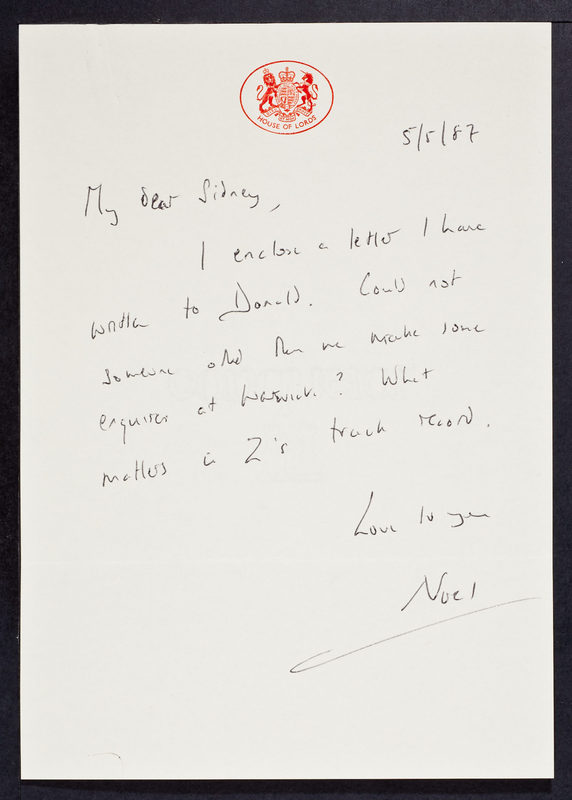 HOUSE OF LORDS
5/5/87
My dear Sidney,
I enclose a letter I have
written to Donald. Could not
someone other than me make some
enquiries at Warwick? What
matters is Z's track record.
Love to you
Noel